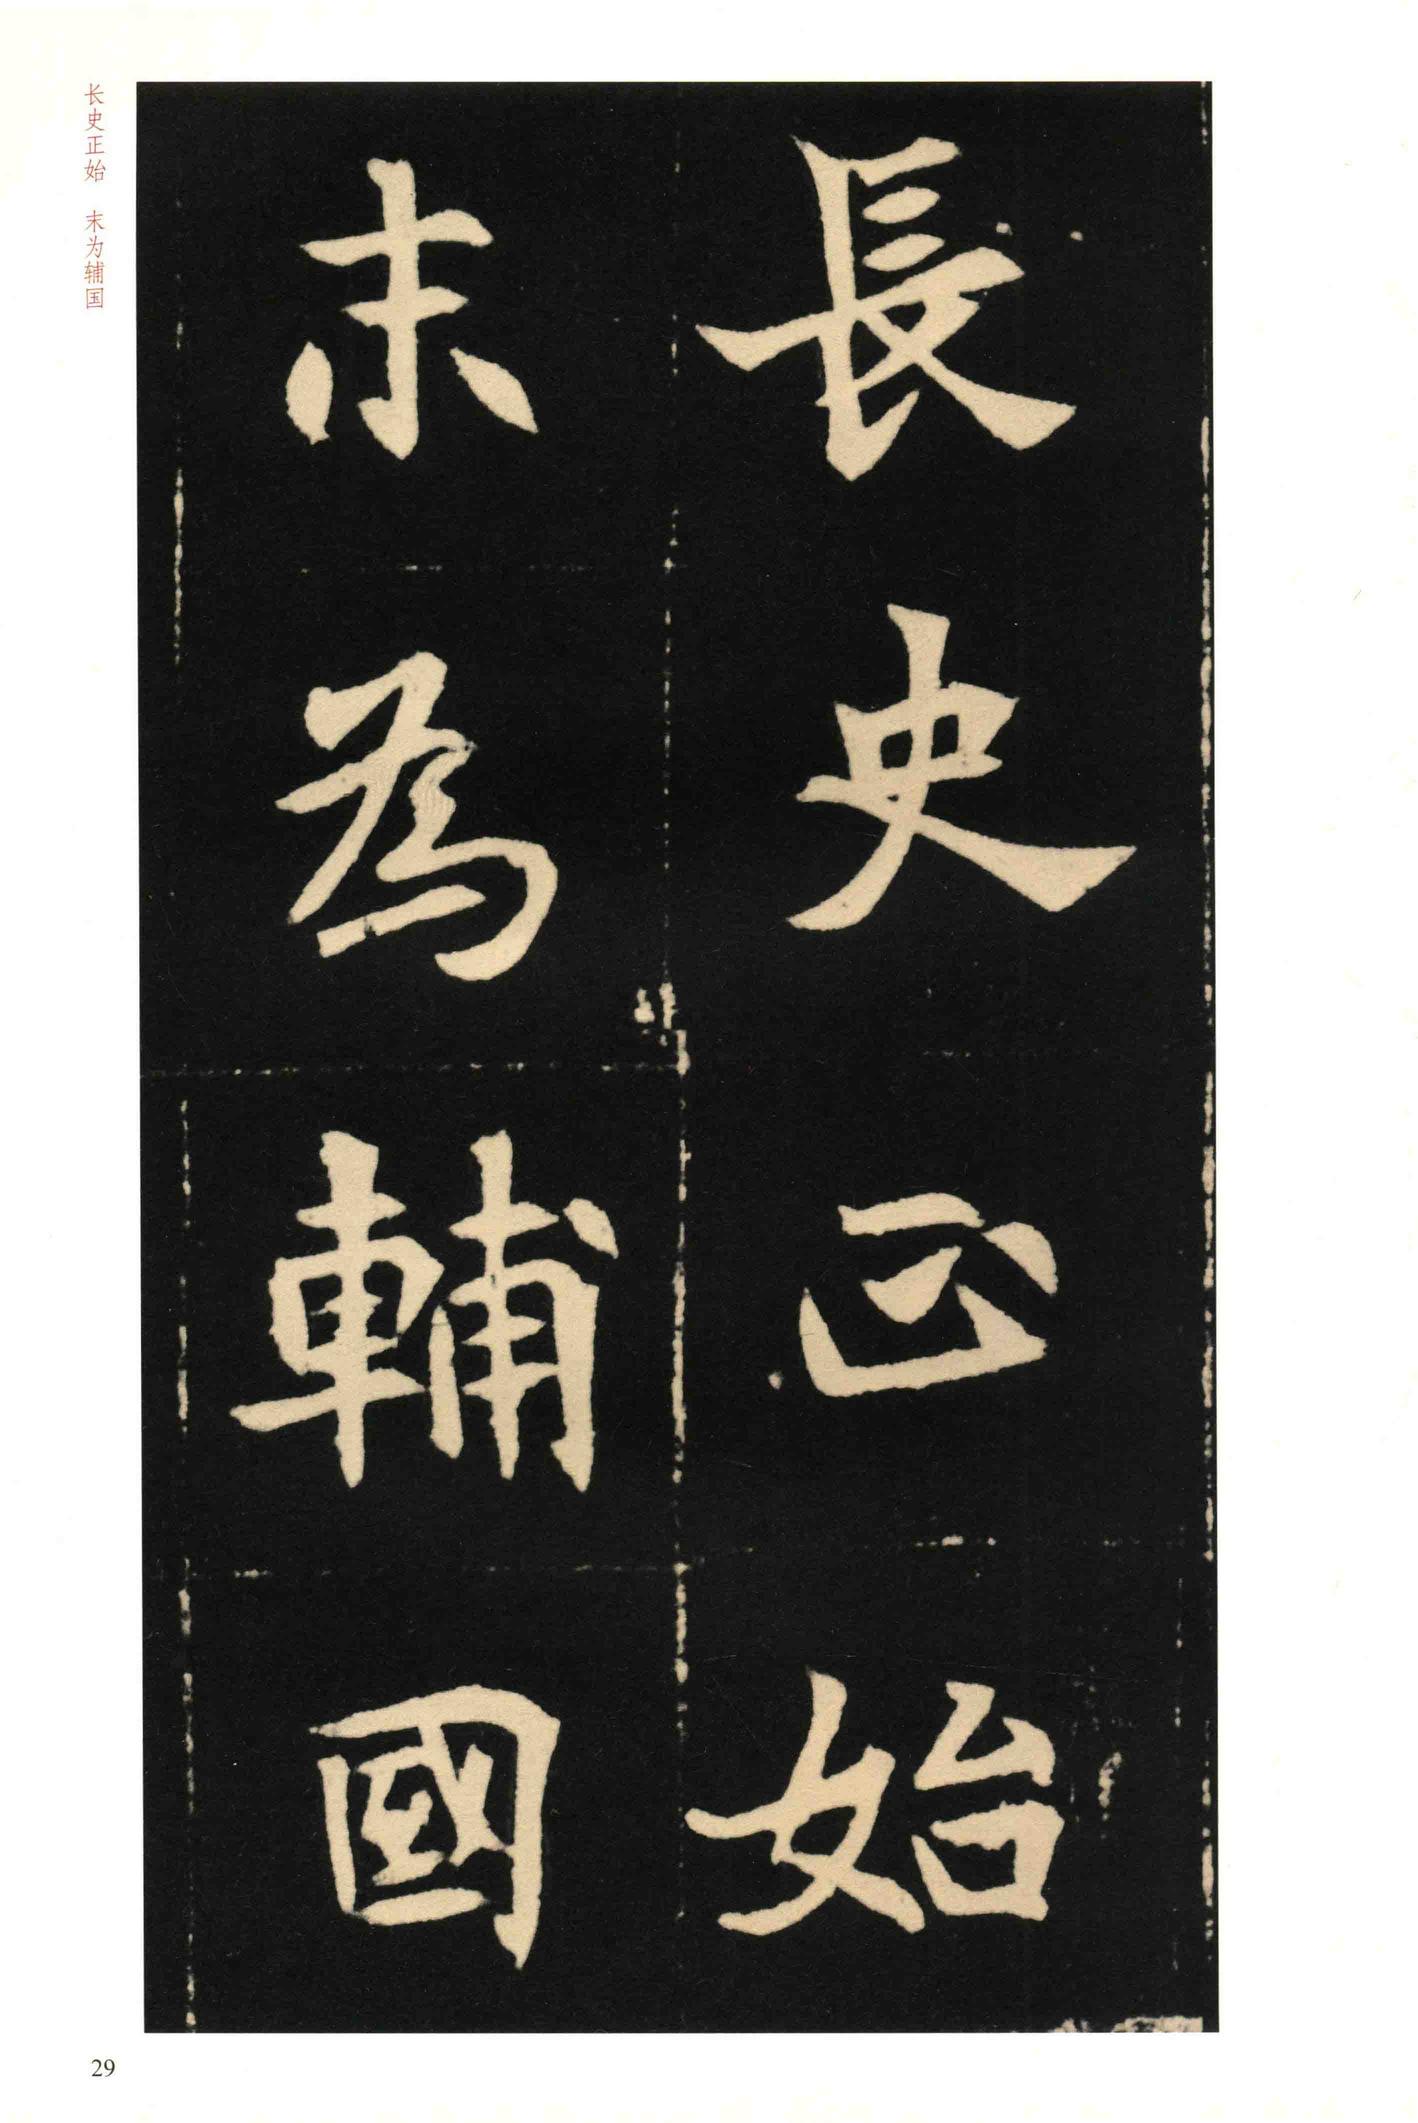 長史正始
末為輔國
长史正始 末为辅国
29